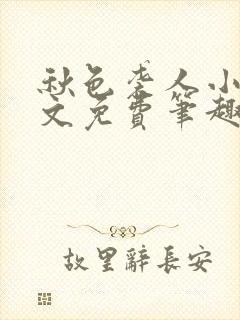 秋色袭人小
文免費筆趣
故里辭長安